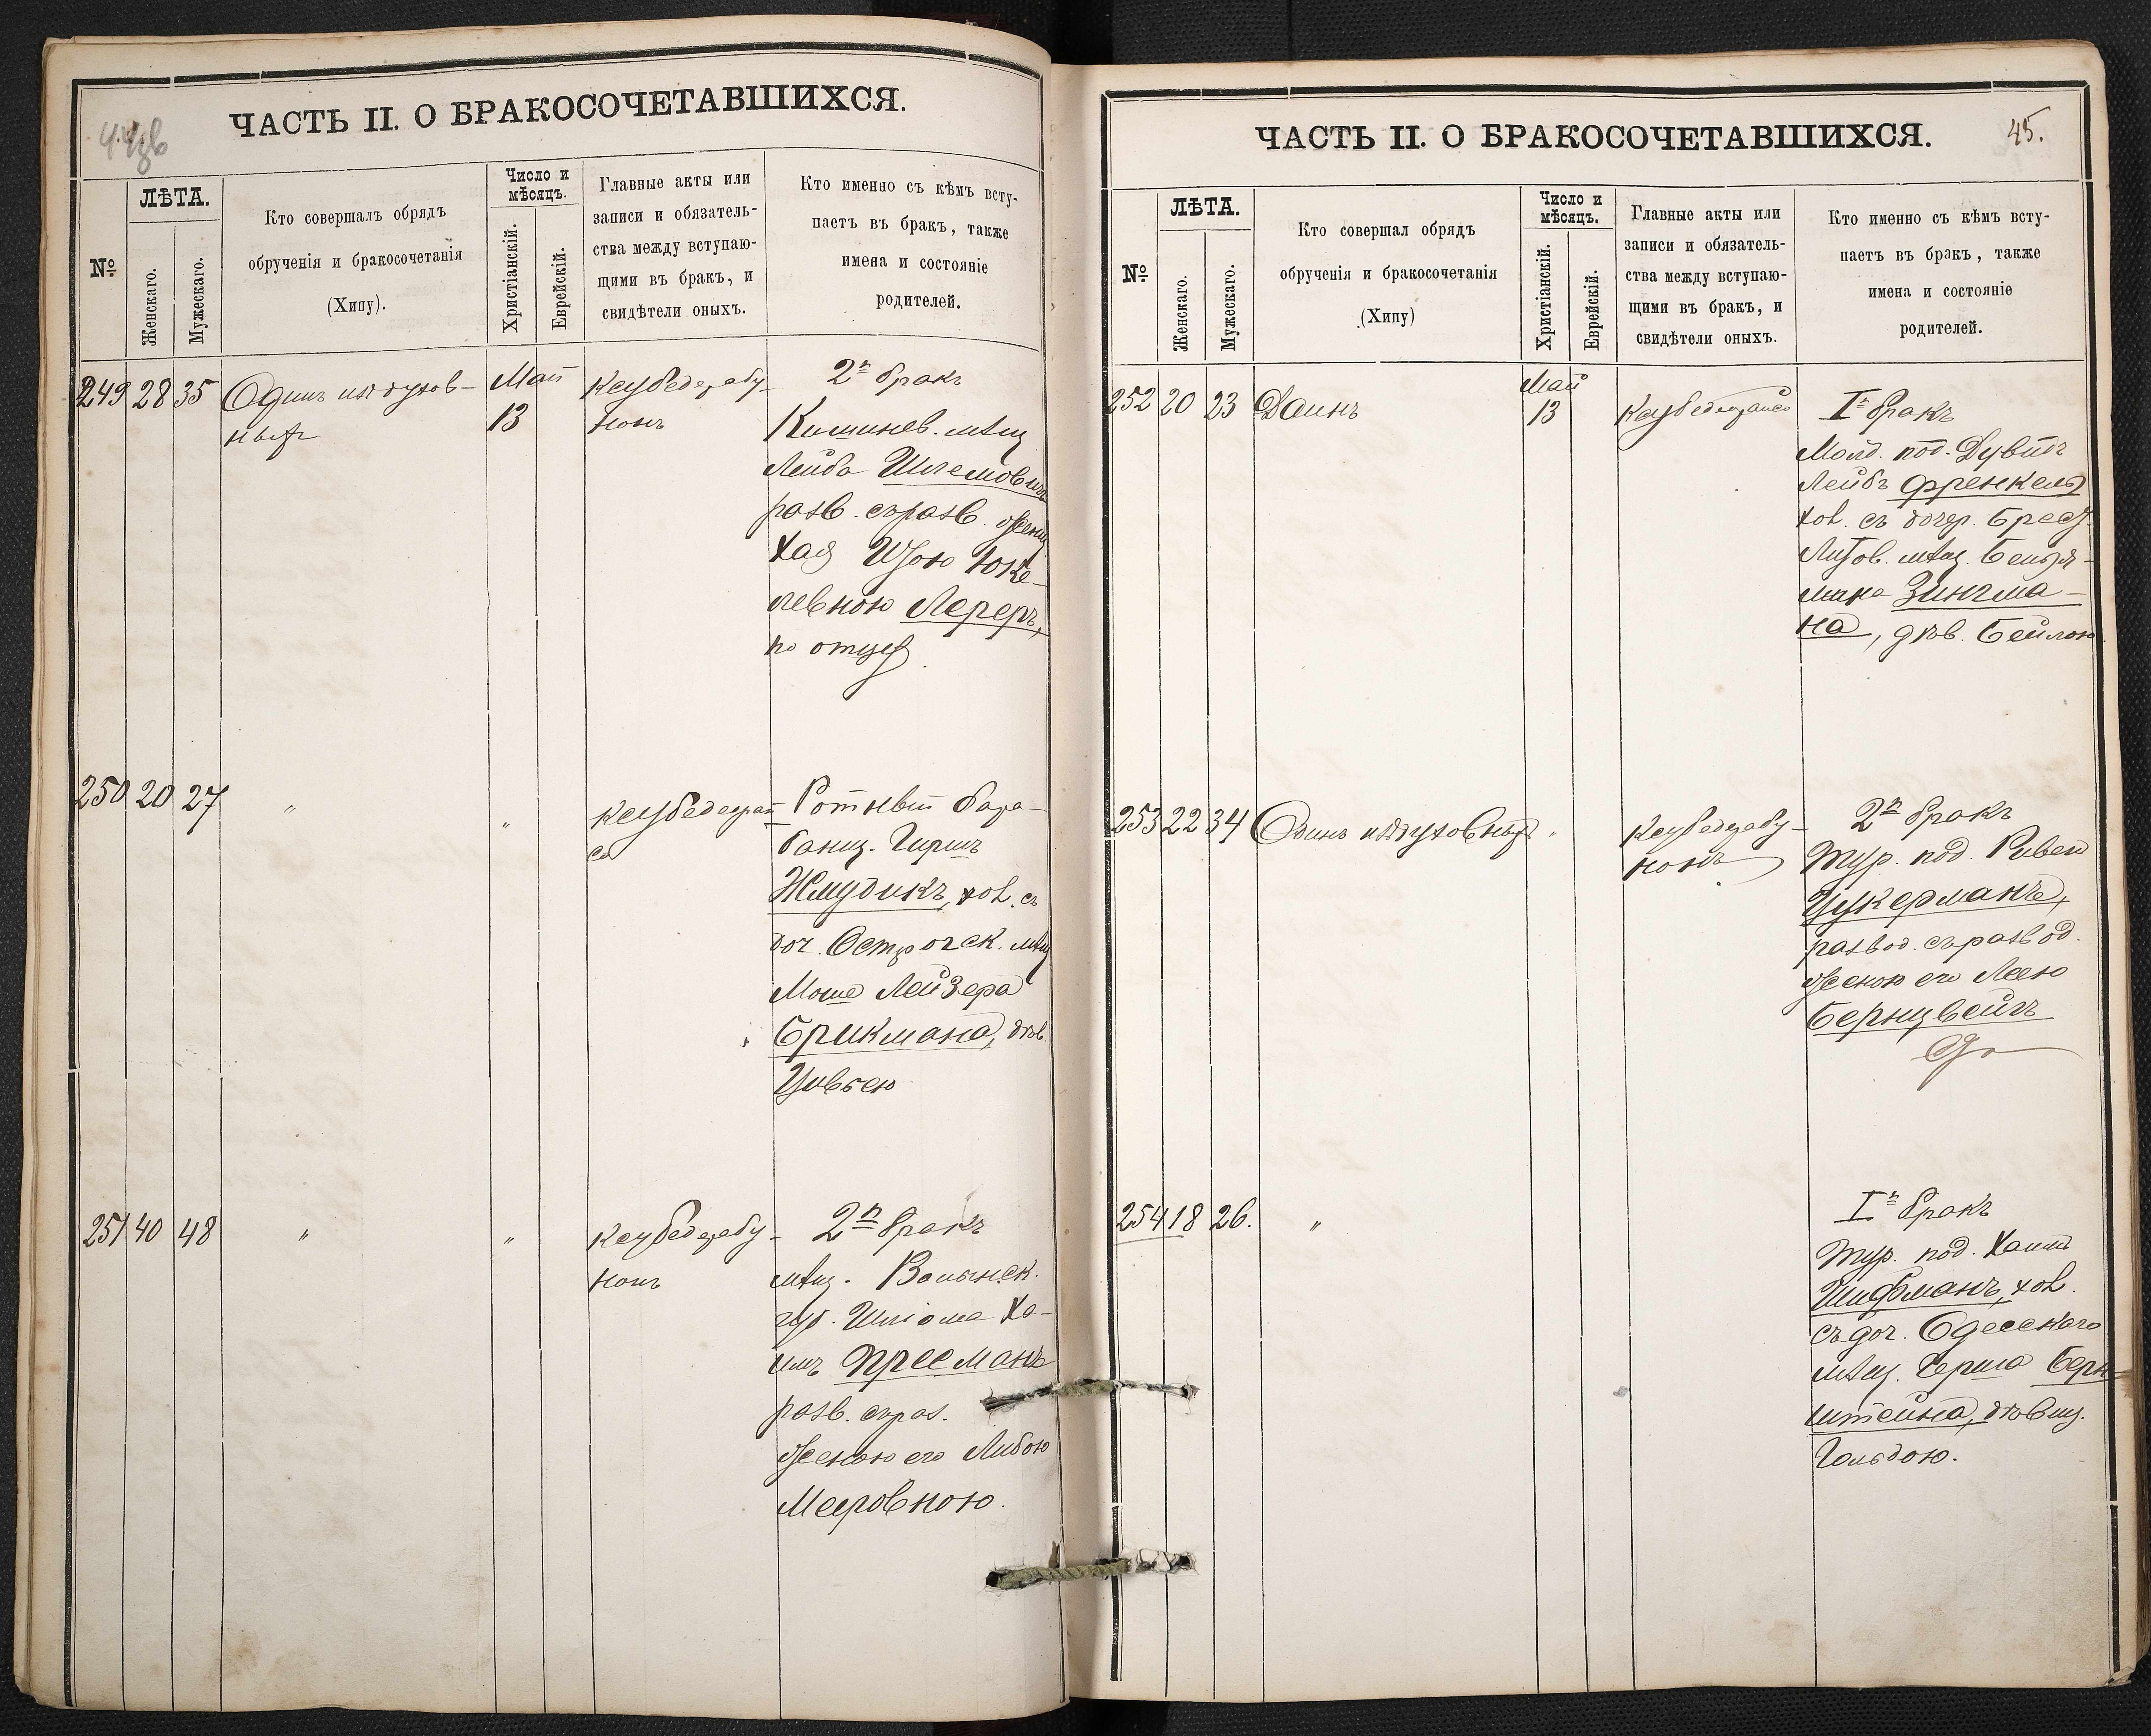 ЧАСТЬ II. О БРАКОСОЧЕТАВШИХСЯ.
№
ЛѢТА.
Женскаго.
Мужескаго.
Кто совершалъ обрядъ
обрученія и бракосочетанія
(Хипу).
Число и
мѣсяцъ.
Христіанскій.
Еврейскій.
Главные акты или
записи и обязатель-
ства между вступаю-
щими въ бракъ, и
свидѣтели оныхъ.
Кто именно съ кѣмъ всту-
паетъ въ бракъ, также
имена и состояніе
родителей.
249 28 35 Одинъ изъ духов-
ныхъ
Май
13
2й бракъ
Кишинев. мѣщ.
Лейба Шлемовичъ
разв. съ разв. женщ.
Хая
левною Лереръ,
по отцу
250 20 27 " "
Ротный бара-
банщ. Гиршъ
Жмудикъ, хол. съ
доч. Острогск. мѣщ.
Моше Лейзера
Брикмана, дѣв.
Цивьею
251 40 48 " "
2й бракъ
мѣщ. Волынск.
губ. Шліома Ха-
имъ Пресманъ
разв. съ раз.
женою его Либою
Мееровною.
ЧАСТЬ II. О БРАКОСОЧЕТАВШИХСЯ.
45.
№
ЛѢТА.
Женскаго.
Мужескаго.
Кто совершал обрядъ
обрученія и бракосочетанія
(Хипу)
Число и
мѣсяцъ.
Христіанскій.
Еврейскій.
Главные акты или
записи и обязатель-
ства между вступаю-
щими въ бракъ, и
свидѣтели оныхъ.
Кто именно съ кѣмъ всту-
паетъ въ бракъ, также
имена и состояніе
родителей.
252 20 23 Даинъ
Май
13
Iй бракъ
Молд. под. Дувидъ
Лейбъ Френкель
хол. съ дочер. Брест
Литов. мѣщ. Бенья-
мина Зингма-
на, дѣв. Бейлою.
253 22 34 Одинъ изъ духовныхъ "
2й бракъ
Тур. под. Рувен
Цукерманъ,
развод. съ развод.
женою его Леею
Бернцвейгъ
254 18 26. "
Iй бракъ
Тур. под. Хаимъ
Шифманъ, хол.
съ доч. Одесскаго
мѣщ. Герша Берн-
штейна, дѣвиц.
Гольдою.